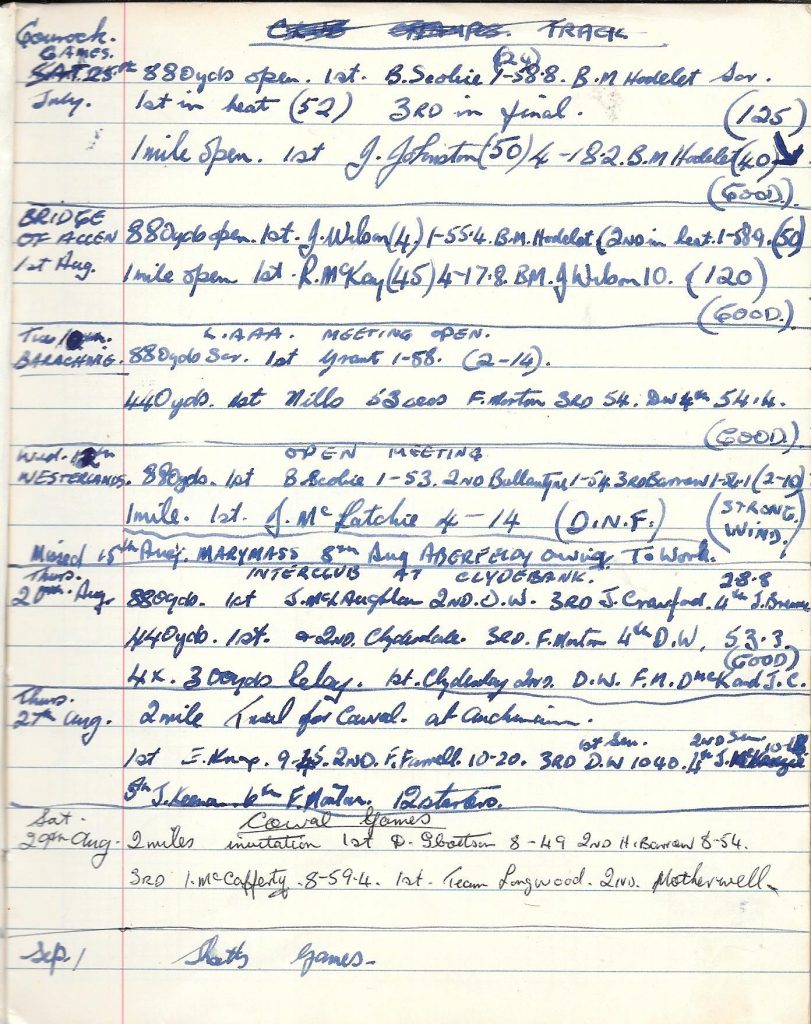 TRACK
Gourock.
GAMES.
SAT. 25th 880yds open. 1st. B. Scobie (24) 1-58.8. B.M Hodelet Scr.
July. 1st in heat (52) 3RD in final. (125)
1mile open. 1st J. Johnston (50) 4-18.2. B.M Hodelet (40)
(GOOD.)
BRIDGE
OF ALLEN 880yds open. 1st. J. Wilson (4.) 1-55.4. B.M. Hodelet (2ND in heat. 1-58.9. (50)
1st Aug. 1mile open 1st. R. McKay (45) 4-17.8. BM. J Wilson 10. (120)
(GOOD.)
Tues 10th. L.A.A.A. MEETING OPEN.
BARACHNIE. 880yds Scr. 1st Grant 1-58. (2-14).
440yds. 1st Mills 53 secs F. Morton 3RD 54. DW 4th 54.4.
(GOOD.)
Wed. 12th OPEN MEETING
WESTERLANDS. 880yds. 1st B. Scobie 1-53. 2ND Ballantyne 1-54. 3RD Barrow 1-54.1 (2-10)
1mile. 1st. J. McLatchie 4-14 (D.N.F.) (STRONG WIND.)
Missed 15th Aug. MARYMASS 8th Aug ABERFELDY owing To Work.
Thurs. INTERCLUB AT CLYDEBANK. 2-8.8
20th Aug. 880yds. 1st J. McLaughlan 2ND. D.W. 3RD J. Crawford. 4th J.
440yds. 1st. & 2ND. Clydesdale. 3RD. F. Morton 4th D.W. 53.3.
(GOOD)
4x. 300yds Relay. 1st. Clydesday 2ND. D.W. F.M. D McK and J.C.
Thurs.
27th Aug. 2mile Trial for Cowal. at
1st Sen. 2ND Sen. 10-48
1st E. Knox. 9-45. 2ND. F. Farrell. 10-20. 3RD D.W 1040. 4th J. McKenzie
5th J. Keenan 6th F. Morton. 12 starters.
Sat. Cowal Games
29th Aug. 2miles invitation 1st D. Ibbotson 8-49 2ND H. Barrow 8-54.
3RD I. McCafferty. 8-59.4. 1st. Team Longwood. 2ND. Motherwell.
Sep. 1 Shotts Games.